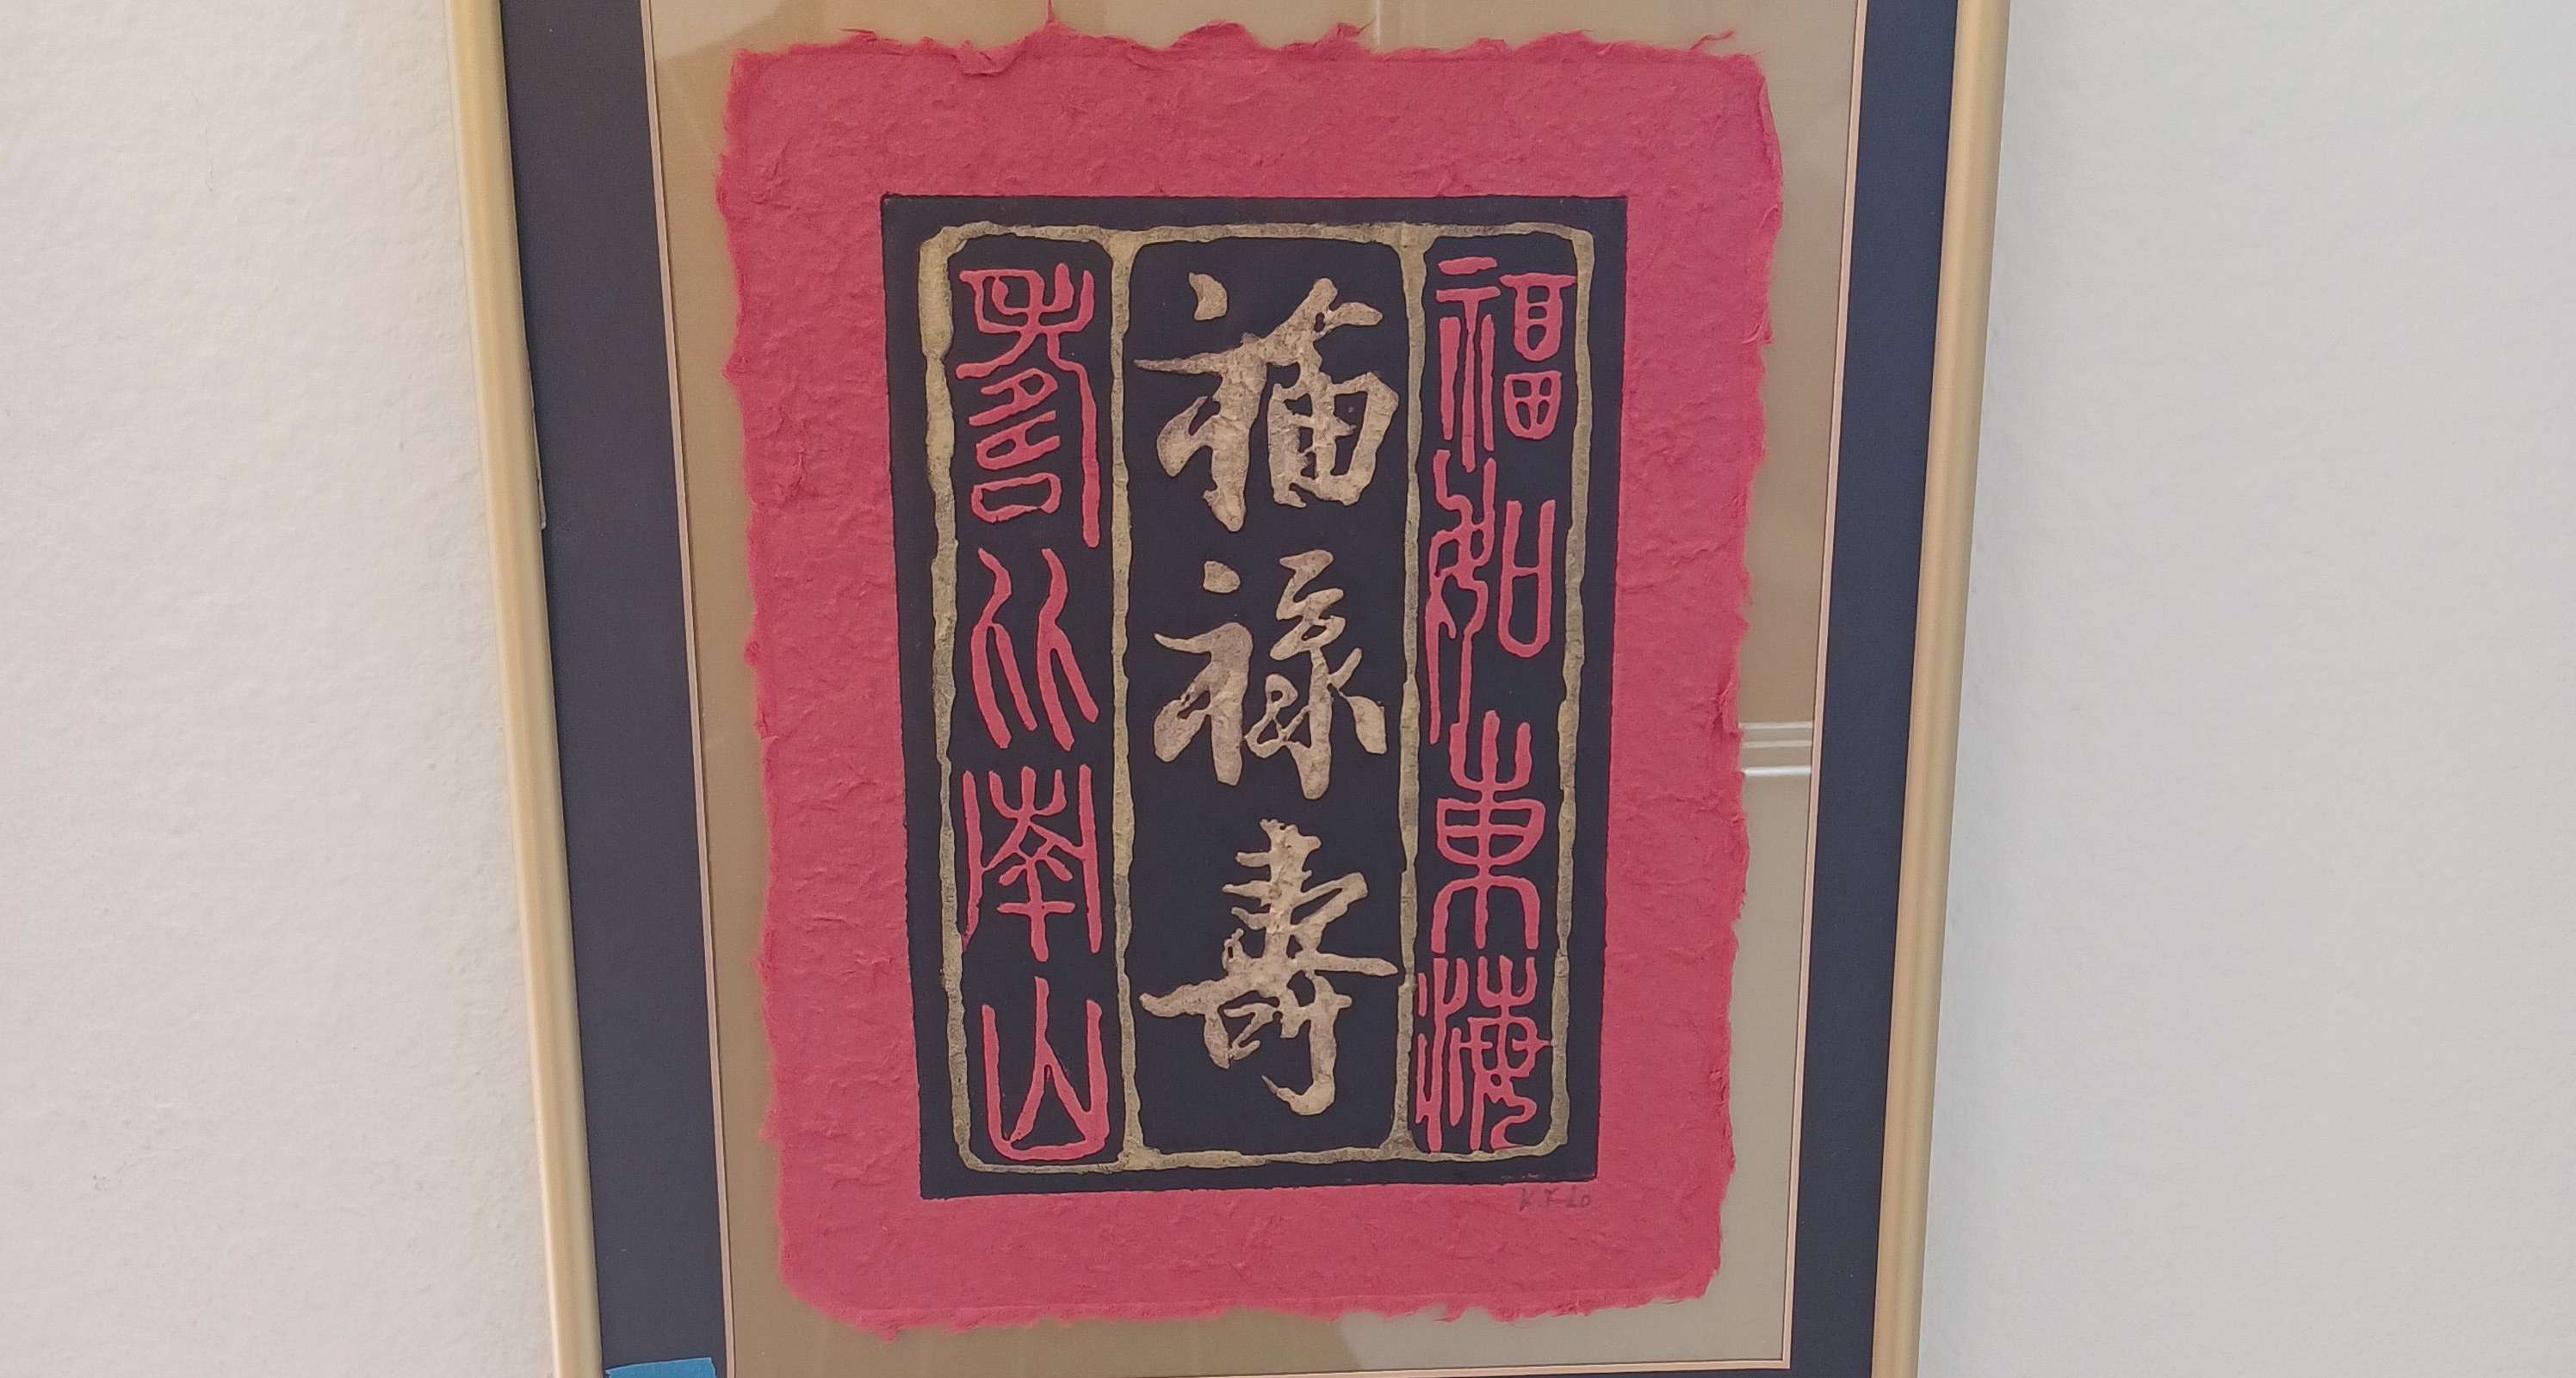 福如東海
福祿壽
壽比南山
K.F. Lo